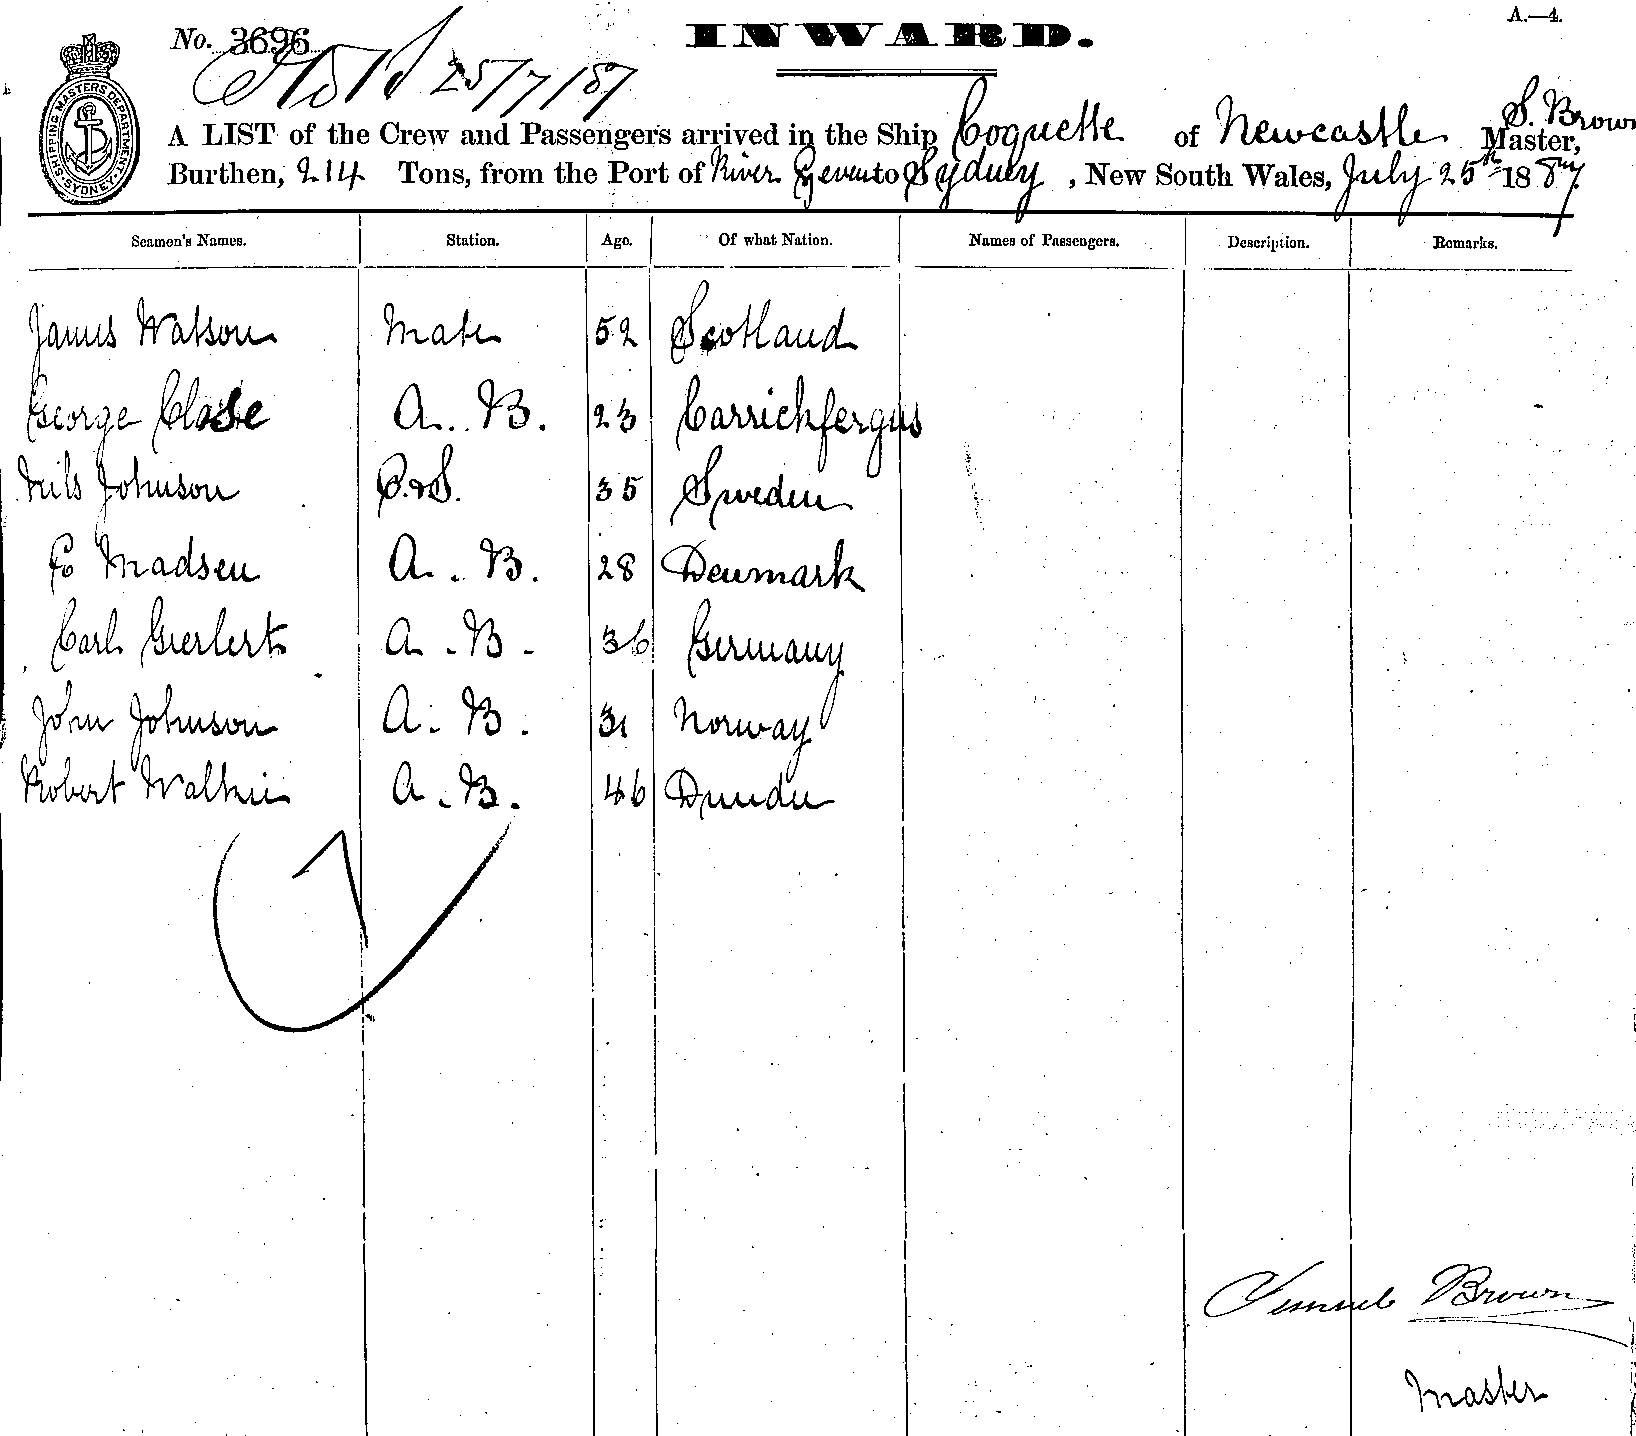 A.—4.
No. 3696
INWARD.
25/7/87
SHIPPING MASTERS DEPARTMENT SYDNEY
S. Brown
A LIST of the Crew and Passengers arrived in the Ship Coquette of Newcastle Master,
Burthen, 214 Tons, from the Port of River to Sydney, New South Wales, July 25th 1887
Seamen's Names. Station. Age. Of what Nation. Names of Passengers. Description. Remarks.
James Watson Mate 52 Scotland
George A. B. 23 Carrickfergus
Nils Johnson 35 Sweden
Madsen A. B. 28 Denmark
Carl Gierlert A. B. 36 Germany
John Johnson A. B. 31 Norway
Robert Walkie A. B. 46 Dundee
Samuel Brown
Master